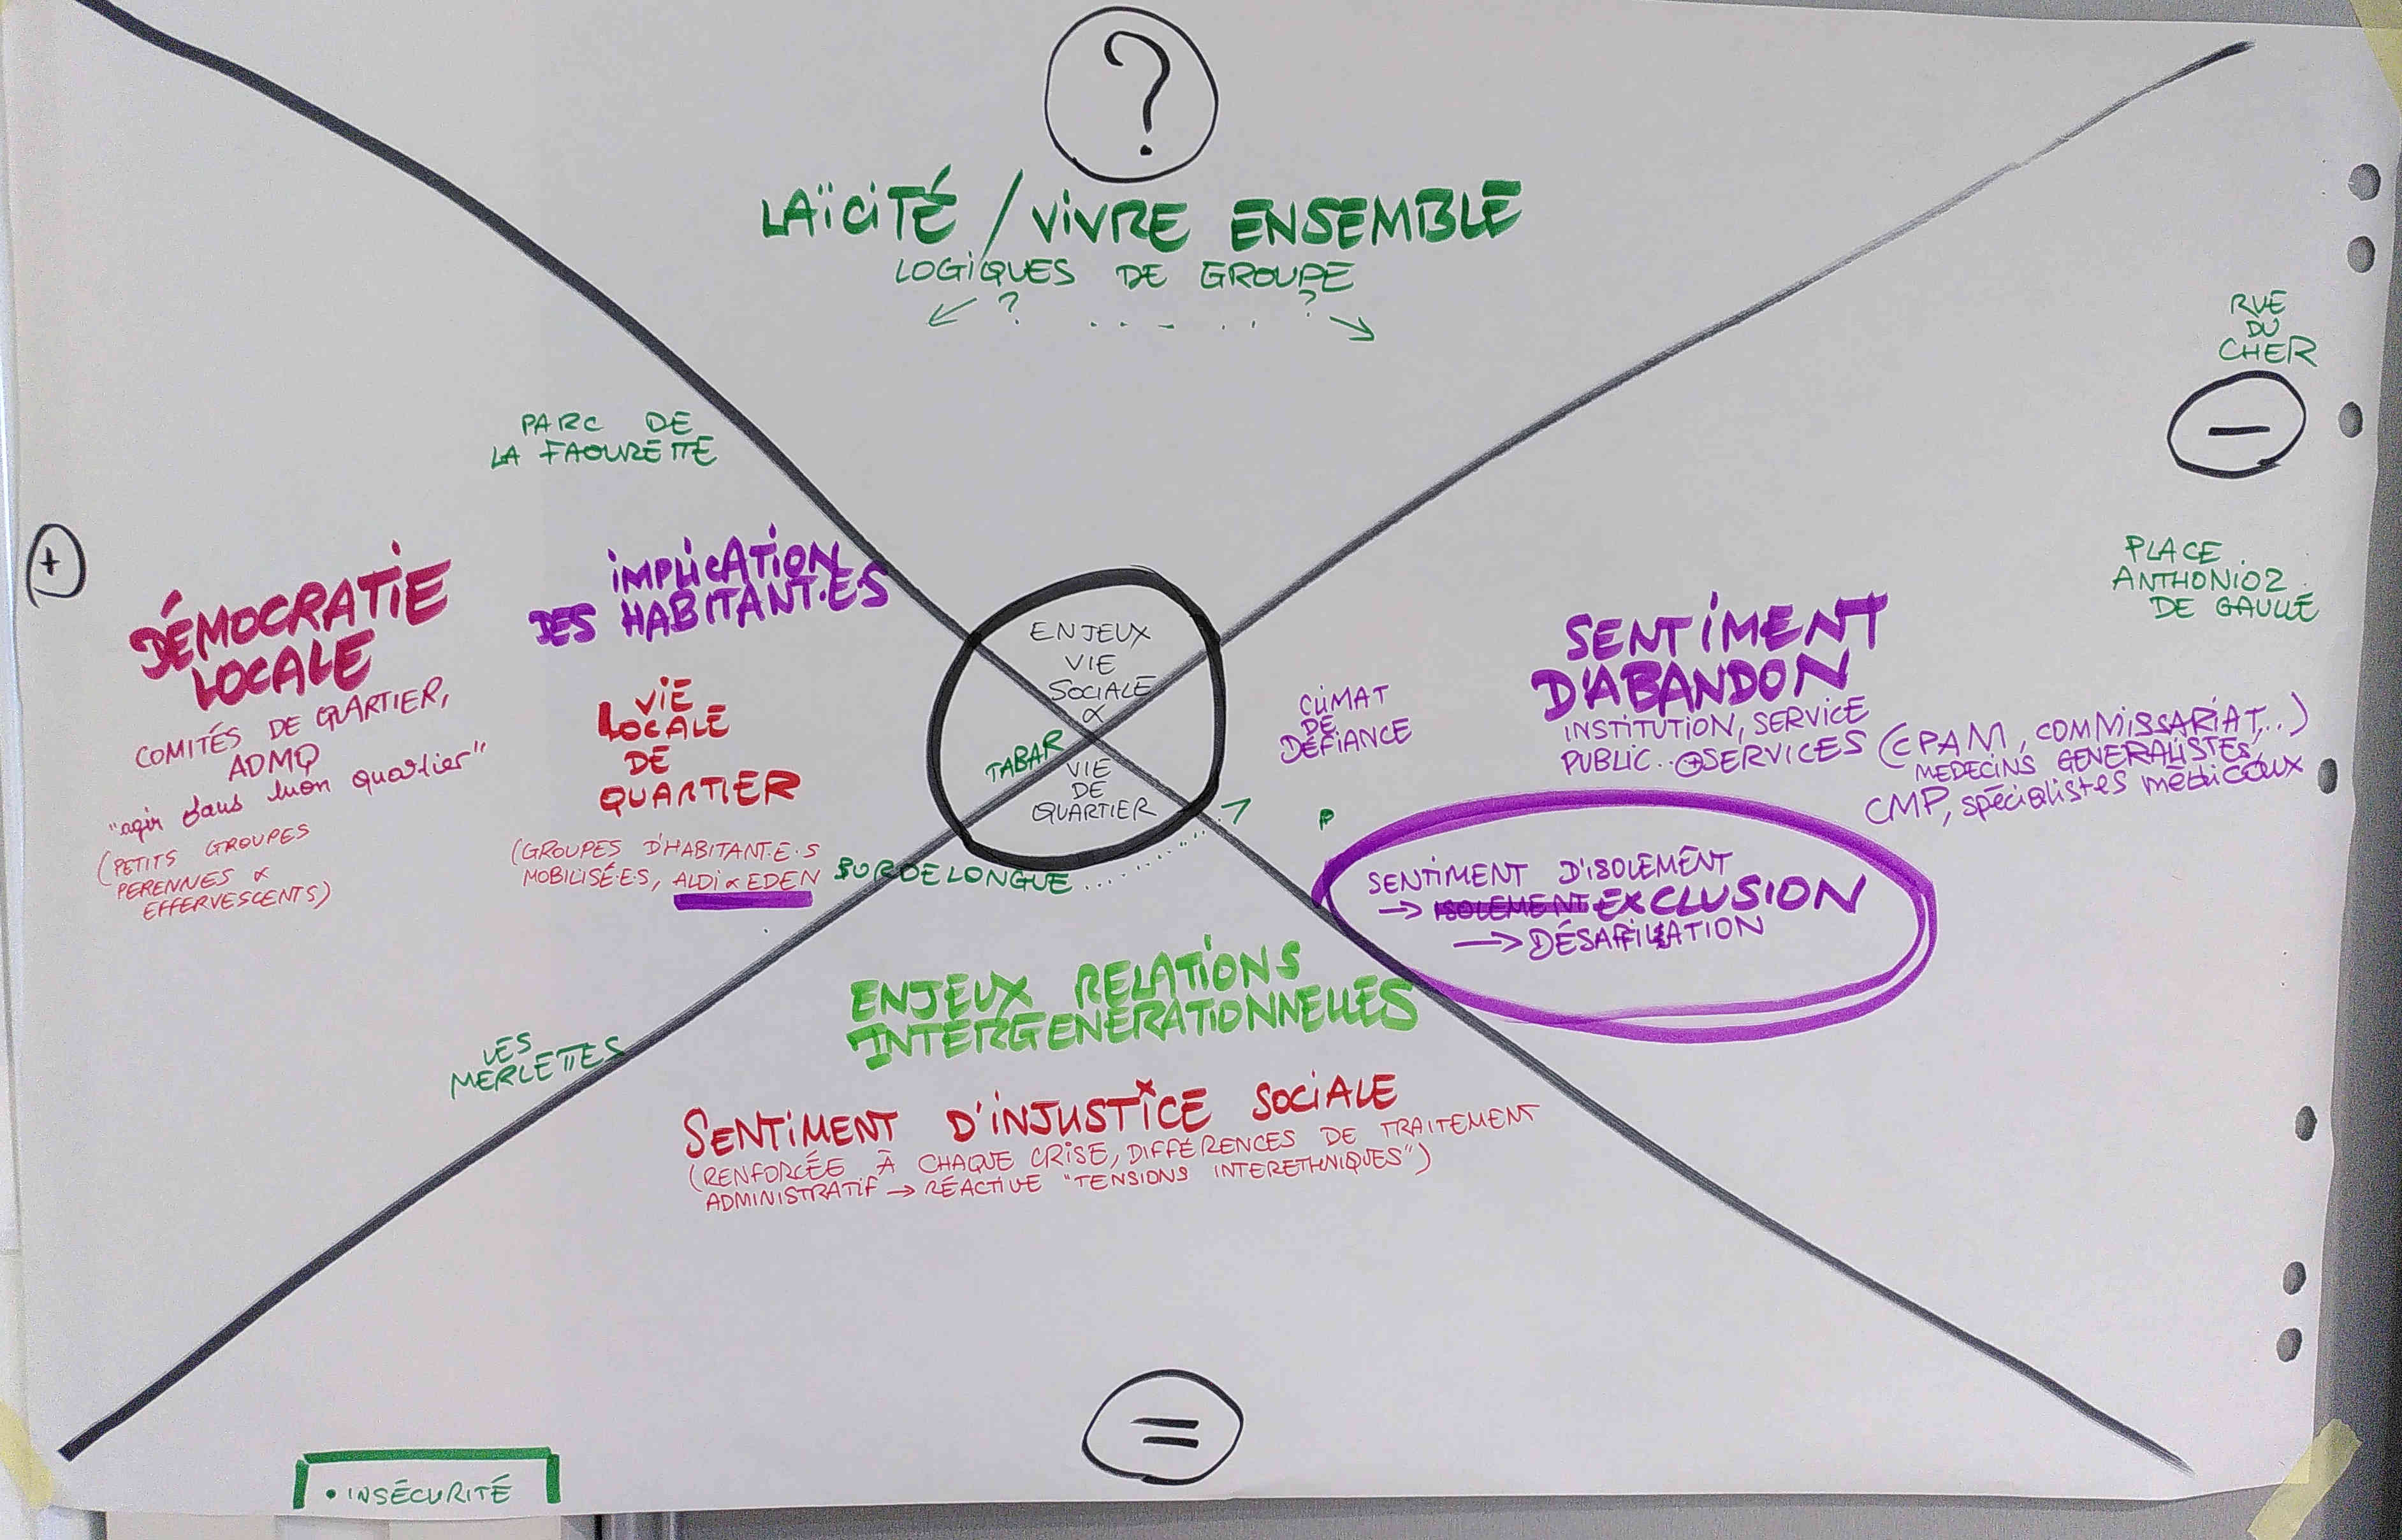 ?
LAÏCITÉ / VIVRE ENSEMBLE
LOGIQUES DE GROUPE
? ?
PARC DE
LA FAOURETTE
+
DÉMOCRATIE
LOCALE
COMITÉS DE QUARTIER,
ADMQ
"agir dans mon quartier"
(PETITS GROUPES
PERENNES &
EFFERVESCENTS)
IMPLICATION
DES HABITANT.ES
VIE
LOCALE
DE
QUARTIER
(GROUPES D'HABITANT.E.S
MOBILISÉ.E.S, ALDI & EDEN
LES
MERLETTES
ENJEUX
VIE
SOCIALE
&
VIE
DE
QUARTIER
TABAR
BORDELONGUE
RUE
DU
CHER
−
PLACE
ANTHONIOZ
DE GAULLE
CLIMAT
DE
DÉFIANCE
SENTIMENT
D'ABANDON
INSTITUTION, SERVICE
PUBLIC.. + SERVICES (CPAM, COMMISSARIAT,..)
MEDECINS GENERALISTES,
CMP, spécialistes médicaux
P
SENTIMENT D'ISOLEMENT
→ ISOLEMENT EXCLUSION
→ DÉSAFILIATION
ENJEUX RELATIONS
INTERGENERATIONNELLES
SENTIMENT D'INJUSTICE SOCIALE
(RENFORCÉE À CHAQUE CRISE, DIFFÉRENCES DE TRAITEMENT
ADMINISTRATIF → RÉACTIVE "TENSIONS INTERETHNIQUES")
=
• INSÉCURITÉ